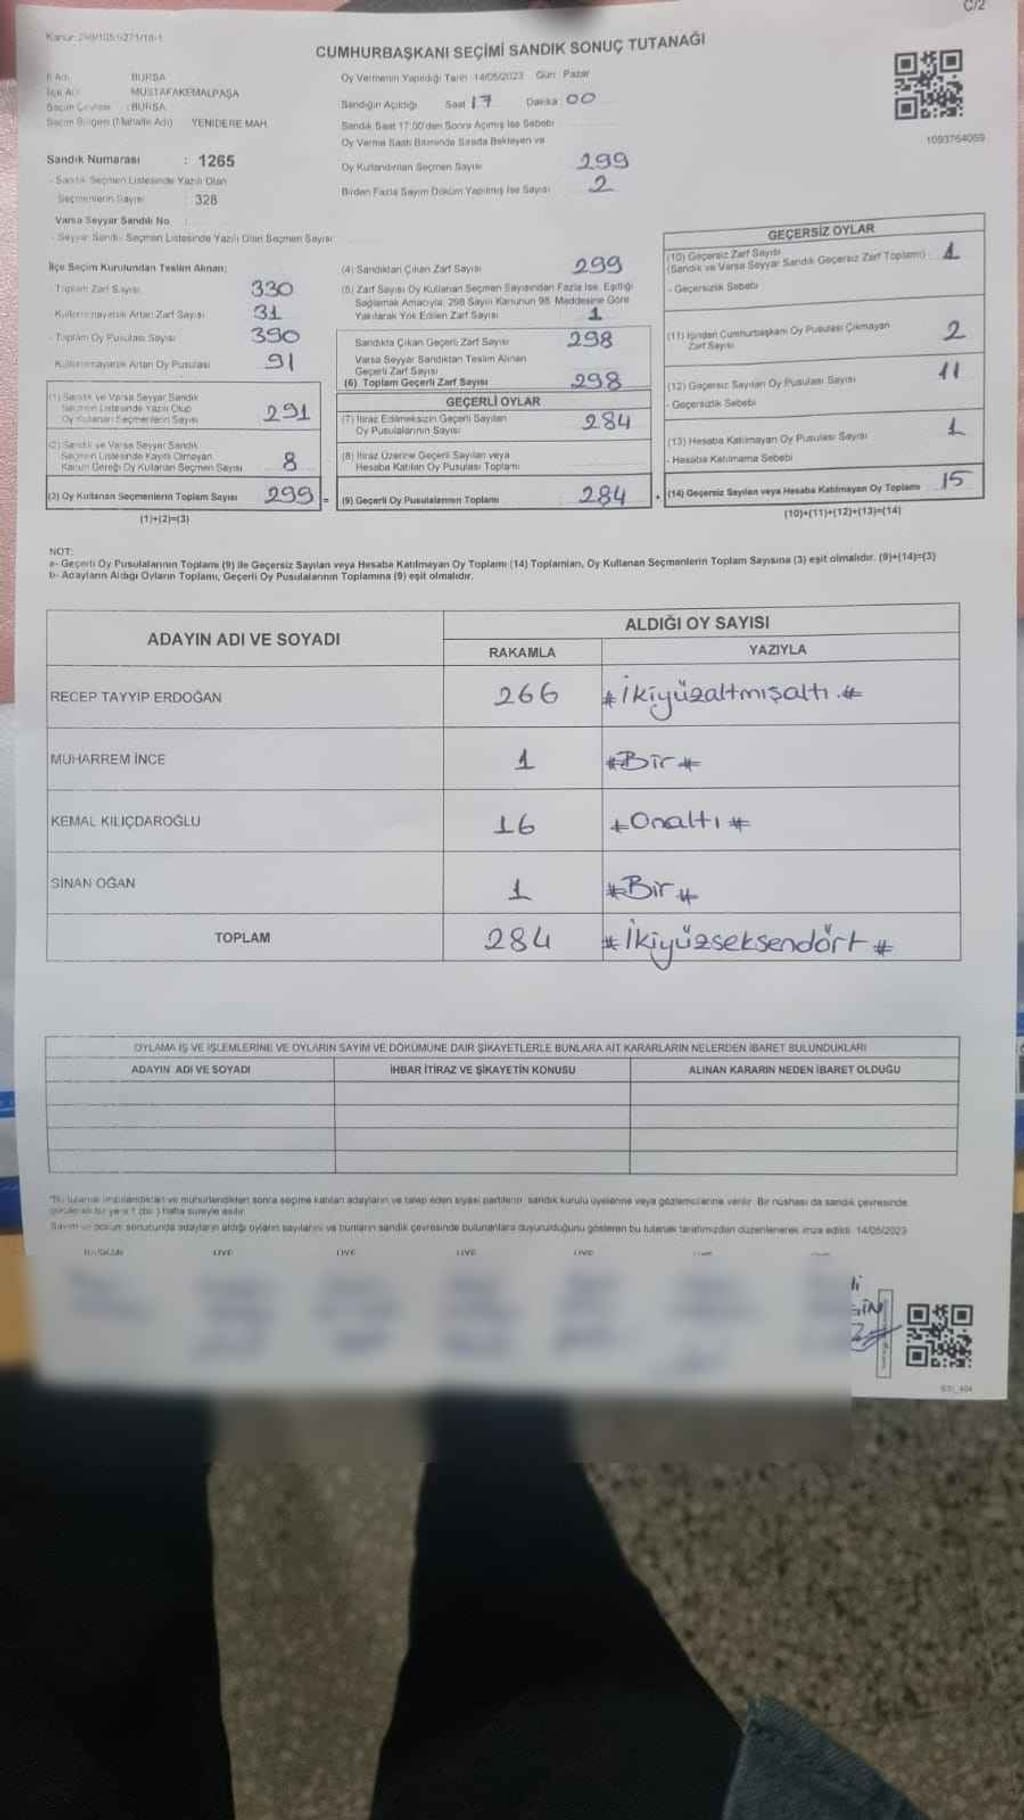 C/2
CUMHURBAŞKANI SEÇİMİ SANDIK SONUÇ TUTANAĞI
İl Adı : BURSA
İlçe Adı : MUSTAFAKEMALPAŞA
Seçim Çevresi : BURSA
Seçim Bölgesi (Mahalle Adı) YENİDERE MAH.
Sandık Numarası : 1265
- Sandık Seçmen Listesinde Yazılı Olan
Seçmenlerin Sayısı : 328
Varsa Seyyar Sandık No :
- Seyyar Sandık Seçmen Listesinde Yazılı Olan Seçmen Sayısı
Oy Vermenin Yapıldığı Tarih : 14/05/2023 Gün : Pazar
Sandığın Açıldığı Saat 17 Dakika : 00
Sandık Saat 17:00'den Sonra Açılmış İse Sebebi
Oy Verme Saati Bitiminde Sırada Bekleyen ve
Oy Kullandırılan Seçmen Sayısı 299
Birden Fazla Sayım Döküm Yapılmış İse Sayısı 2
1093764059
İlçe Seçim Kurulundan Teslim Alınan;
- Toplam Zarf Sayısı 330
- Kullanılmayarak Artan Zarf Sayısı 31
- Toplam Oy Pusulası Sayısı 390
- Kullanılmayarak Artan Oy Pusulası 91
(1) Sandık ve Varsa Seyyar Sandık
Seçmen Listesinde Yazılı Olup
Oy Kullanan Seçmenlerin Sayısı 291
(2) Sandık ve Varsa Seyyar Sandık
Seçmen Listesinde Kayıtlı Olmayan
Kanun Gereği Oy Kullanan Seçmen Sayısı 8
(3) Oy Kullanan Seçmenlerin Toplam Sayısı 299 =
(1)+(2)=(3)
(4) Sandıktan Çıkan Zarf Sayısı 299
(5) Zarf Sayısı Oy Kullanan Seçmen Sayısından Fazla İse, Eşitliği
Sağlamak Amacıyla, 298 Sayılı Kanunun 98. Maddesine Göre
Yakılarak Yok Edilen Zarf Sayısı 1
Sandıkta Çıkan Geçerli Zarf Sayısı 298
Varsa Seyyar Sandıktan Teslim Alınan
Geçerli Zarf Sayısı
(6) Toplam Geçerli Zarf Sayısı 298
GEÇERLİ OYLAR
(7) İtiraz Edilmeksizin Geçerli Sayılan
Oy Pusulalarının Sayısı 284
(8) İtiraz Üzerine Geçerli Sayılan veya
Hesaba Katılan Oy Pusulası Toplamı
(9) Geçerli Oy Pusulalarının Toplamı 284
GEÇERSİZ OYLAR
(10) Geçersiz Zarf Sayısı
(Sandık ve Varsa Seyyar Sandık Geçersiz Zarf Toplamı) 1
- Geçersizlik Sebebi
(11) İçinden Cumhurbaşkanı Oy Pusulası Çıkmayan
Zarf Sayısı 2
(12) Geçersiz Sayılan Oy Pusulası Sayısı 11
- Geçersizlik Sebebi
(13) Hesaba Katılmayan Oy Pusulası Sayısı 1
- Hesaba Katılmama Sebebi
(14) Geçersiz Sayılan veya Hesaba Katılmayan Oy Toplamı 15
(10)+(11)+(12)+(13)=(14)
NOT:
a- Geçerli Oy Pusulalarının Toplamı (9) ile Geçersiz Sayılan veya Hesaba Katılmayan Oy Toplamı (14) Toplamları, Oy Kullanan Seçmenlerin Toplam Sayısına (3) eşit olmalıdır. (9)+(14)=(3)
b- Adayların Aldığı Oyların Toplamı, Geçerli Oy Pusulalarının Toplamına (9) eşit olmalıdır.
ADAYIN ADI VE SOYADI ALDIĞI OY SAYISI
RAKAMLA YAZIYLA
RECEP TAYYİP ERDOĞAN 266 #İkiyüzaltmışaltı.#
MUHARREM İNCE 1 #Bir#
KEMAL KILIÇDAROĞLU 16 #Onaltı#
SİNAN OĞAN 1 #Bir#
TOPLAM 284 #İkiyüzseksendört#
OYLAMA İŞ VE İŞLEMLERİNE VE OYLARIN SAYIM VE DÖKÜMÜNE DAİR ŞİKAYETLERLE BUNLARA AİT KARARLARIN NELERDEN İBARET BULUNDUKLARI
ADAYIN ADI VE SOYADI İHBAR İTİRAZ VE ŞİKAYETİN KONUSU ALINAN KARARIN NEDEN İBARET OLDUĞU
*Bu tutanak imzalandıktan ve mühürlendikten sonra seçime katılan adayların ve talep eden siyasi partilerin sandık kurulu üyelerine veya gözlemcilerine verilir. Bir nüshası da sandık çevresinde
Sayım ve döküm sonucunda adayların aldığı oyların sayılarını ve bunların sandık çevresinde bulunanlara duyurulduğunu gösteren bu tutanak tarafımızdan düzenlenerek imza edildi. 14/05/2023
BAŞKAN ÜYE ÜYE ÜYE ÜYE